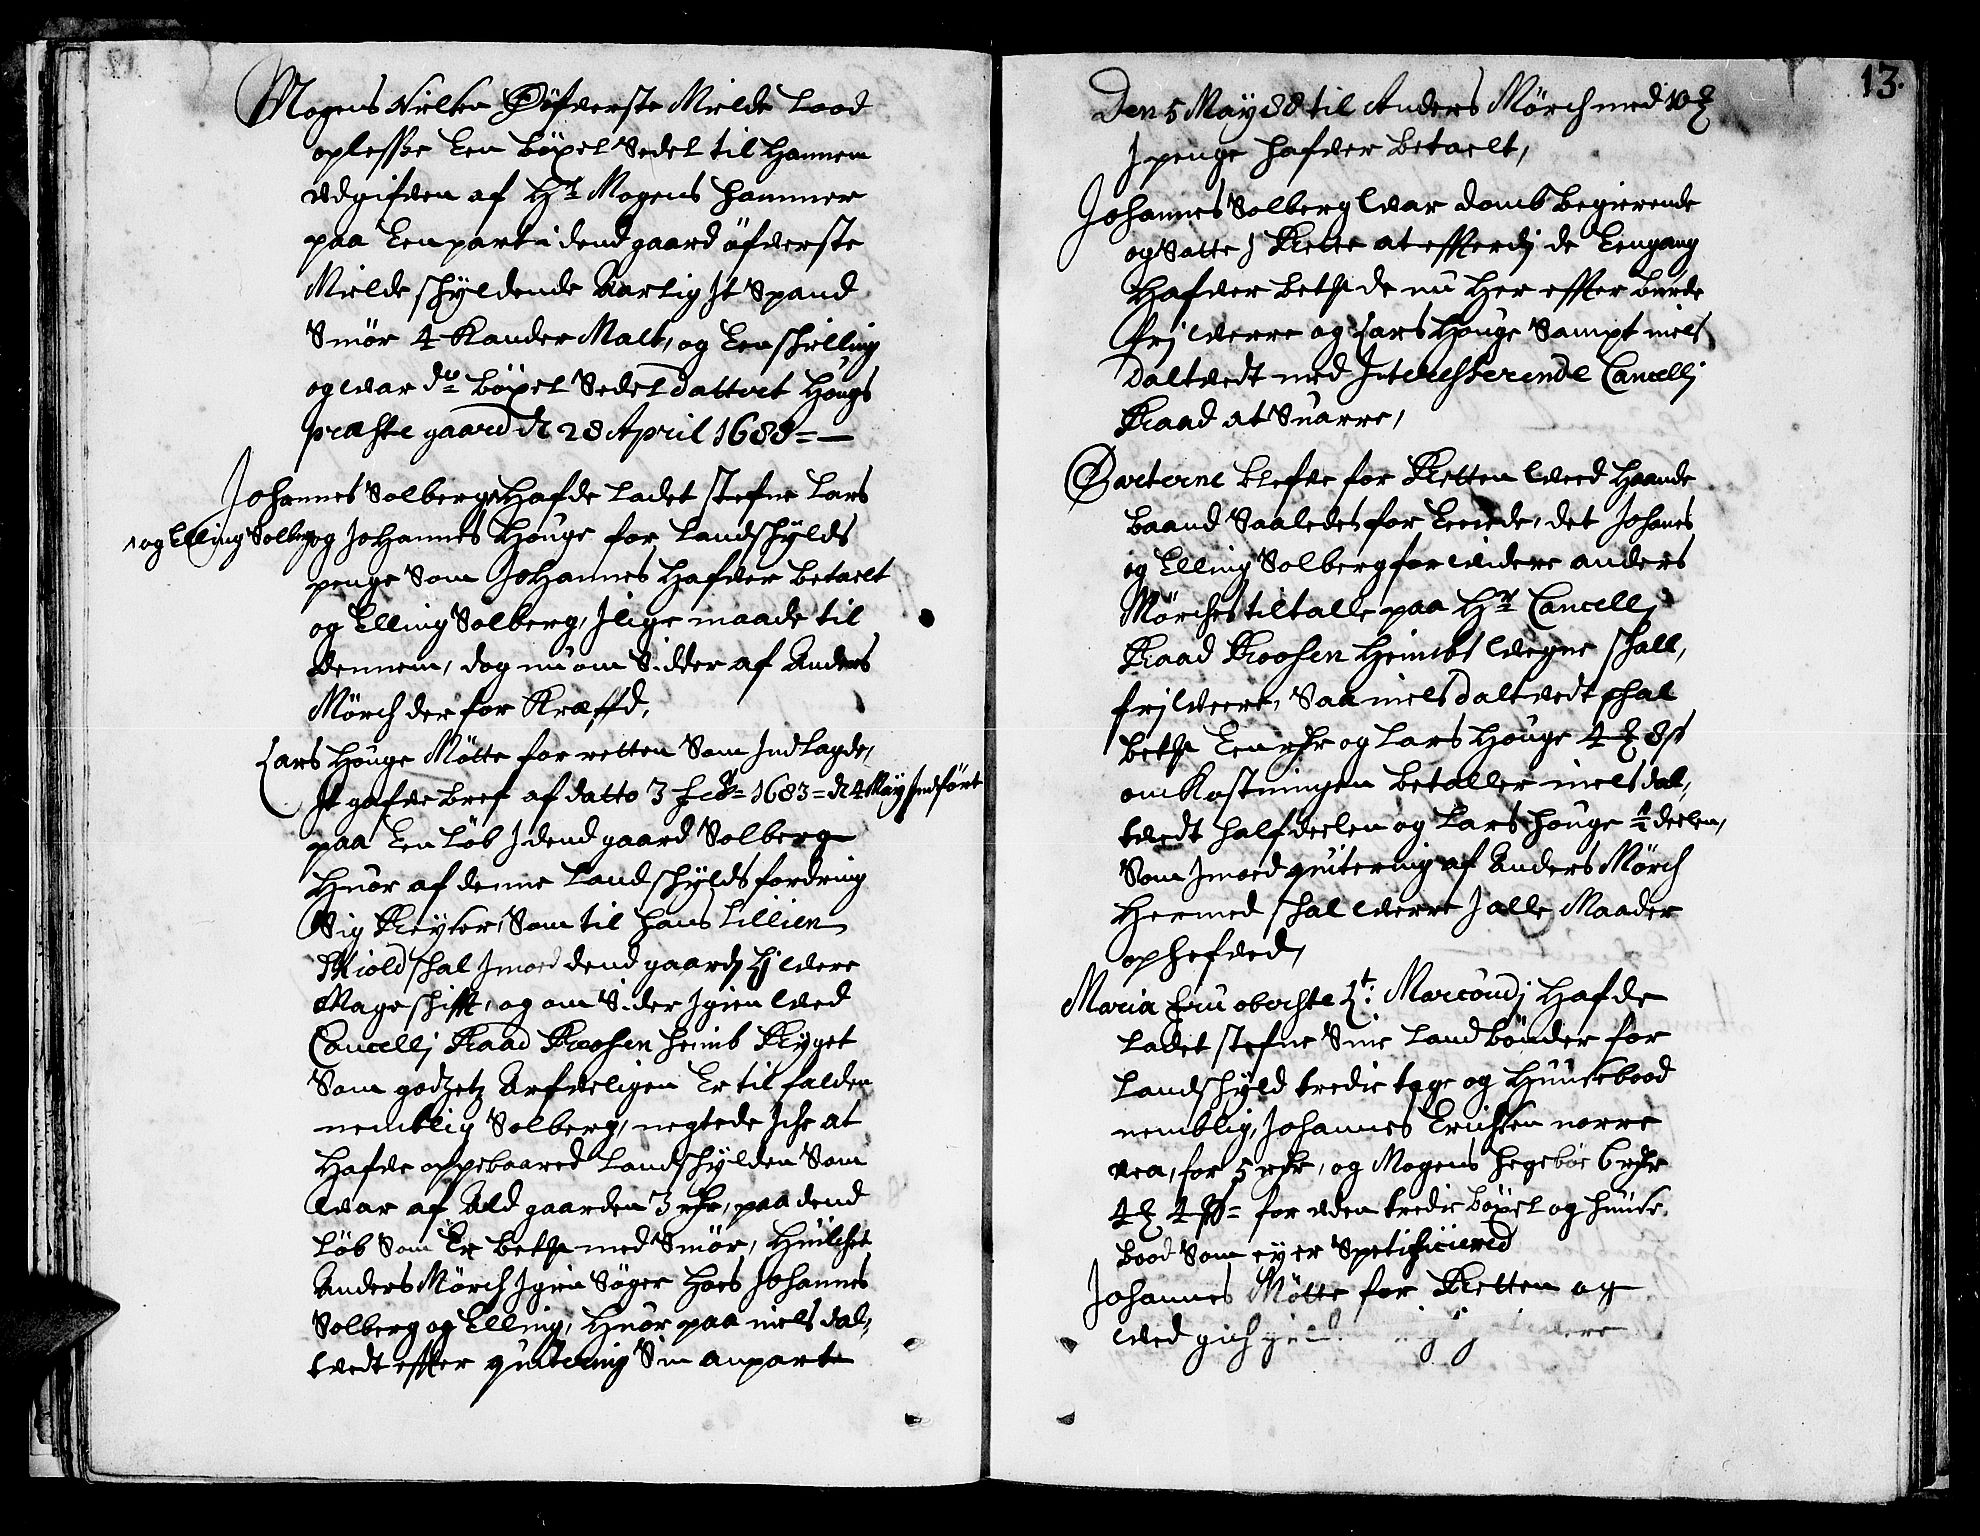 Mogens Nielsen Øfverste Mielde Lood
oplesse Een böxel Sedel til hannem
udgifven af Hr Mogens Hammer
paa Een part i dend gaard öfverste
Mielde schyldende Aarlig It Spand
Smör 4 Kander Malt, og Een schilling
og war do böxel Sedel datteret Hougs
præste gaard d 28 April 1688 = —
Johannes Solberg Hafde Ladet stefne Lars
og Elling Solberg og Johannes Houge for Landschylds
penge Som Johannes Hafver betaelt
og Elling Solberg, I lige maade til
dennem, dog nu om Sidder af Anders
Mörch der for Kræffd,
Lars Houge Mötte for retten Som Ind Lagde,
It gafve bref af datto 3 febr = 1683 = d 4 May Indfört
paa Een Löb I dend gaard Solberg
Huor af denne Landschylds fordring
Sig Reyser, Som til Hans Lillien
Skiold schal Imod dend gaard Hj were
Mageschifft, og om Sider Igien wed
Cancellj Raad Roosen Heimb Ryget
Som godzetz Arfveligen Er til falden
nemblig Solberg, negtede Iche at
Hafde oppebaared Landschylden Som
war af Ald gaarden 3 rdr, paa dend
Löb Som Er beth med Smör, Huilchet
Anders Mörch Igien Söger Hoes Johannes
Solberg og Elling, Huor paa niels dal,
tvedt effter quitering Sin anparte
13.
Den 5 May 88 til Anders Mörch med 10
I penge Hafver betaelt,
Johannes Solberg war domb begierende
og Satte I Rette at effterdj de Eengang
Hafver beth de nu Her effter burde
frj werre og Lars Houge Sampt niels
daltvedt med Interesserende Cancellj
Raad at Suarre,
Parterne blefve for Retten wed Haande
baand Saaledes for Eenede, det Johanes
og Elling Solberg for widere anders
Mörches tiltalle paa Hr Cancellj
Raad Roosen Heimbs wegne schall,
frj were, Saa niels daltvedt schal
beth Een rdr og Lars Houge 4 8 s
omkostningen betaller niels dal,
tvedt halfdeelen og Lars Houge 1/2 deelen,
Som Imod quitering af Anders Mörch
Hermed schal werre I alle Maader
ophefved,
Maria fru oberste Lt: Marcoudj Hafde
Ladet stefne Sine Landbönder for
Landschyld tredie tage og Huusebood
nemblig, Johannes Erichsen norre
vea, for 5 rdr, og Mogens Hegeböe 6 rdr
4 4 s = for uden tredie böxel og Huuse,
bood Som eyer Spetificiered
Johannes Mötte for Retten og
wed gich